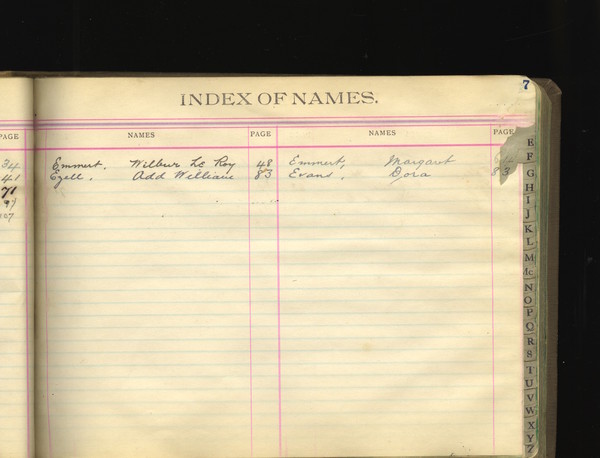 7
INDEX OF NAMES.
PAGE NAMES PAGE NAMES PAGE
34 Emmert, Wilbur Le Roy 48 Emmert, Margaret
41 Ezell, Add William 83 Evans, Dora 83
71
97
107
E
F
G
H
I
J
K
L
M
Mc
N
O
P
Q
R
S
T
U
V
W
X
Y
Z